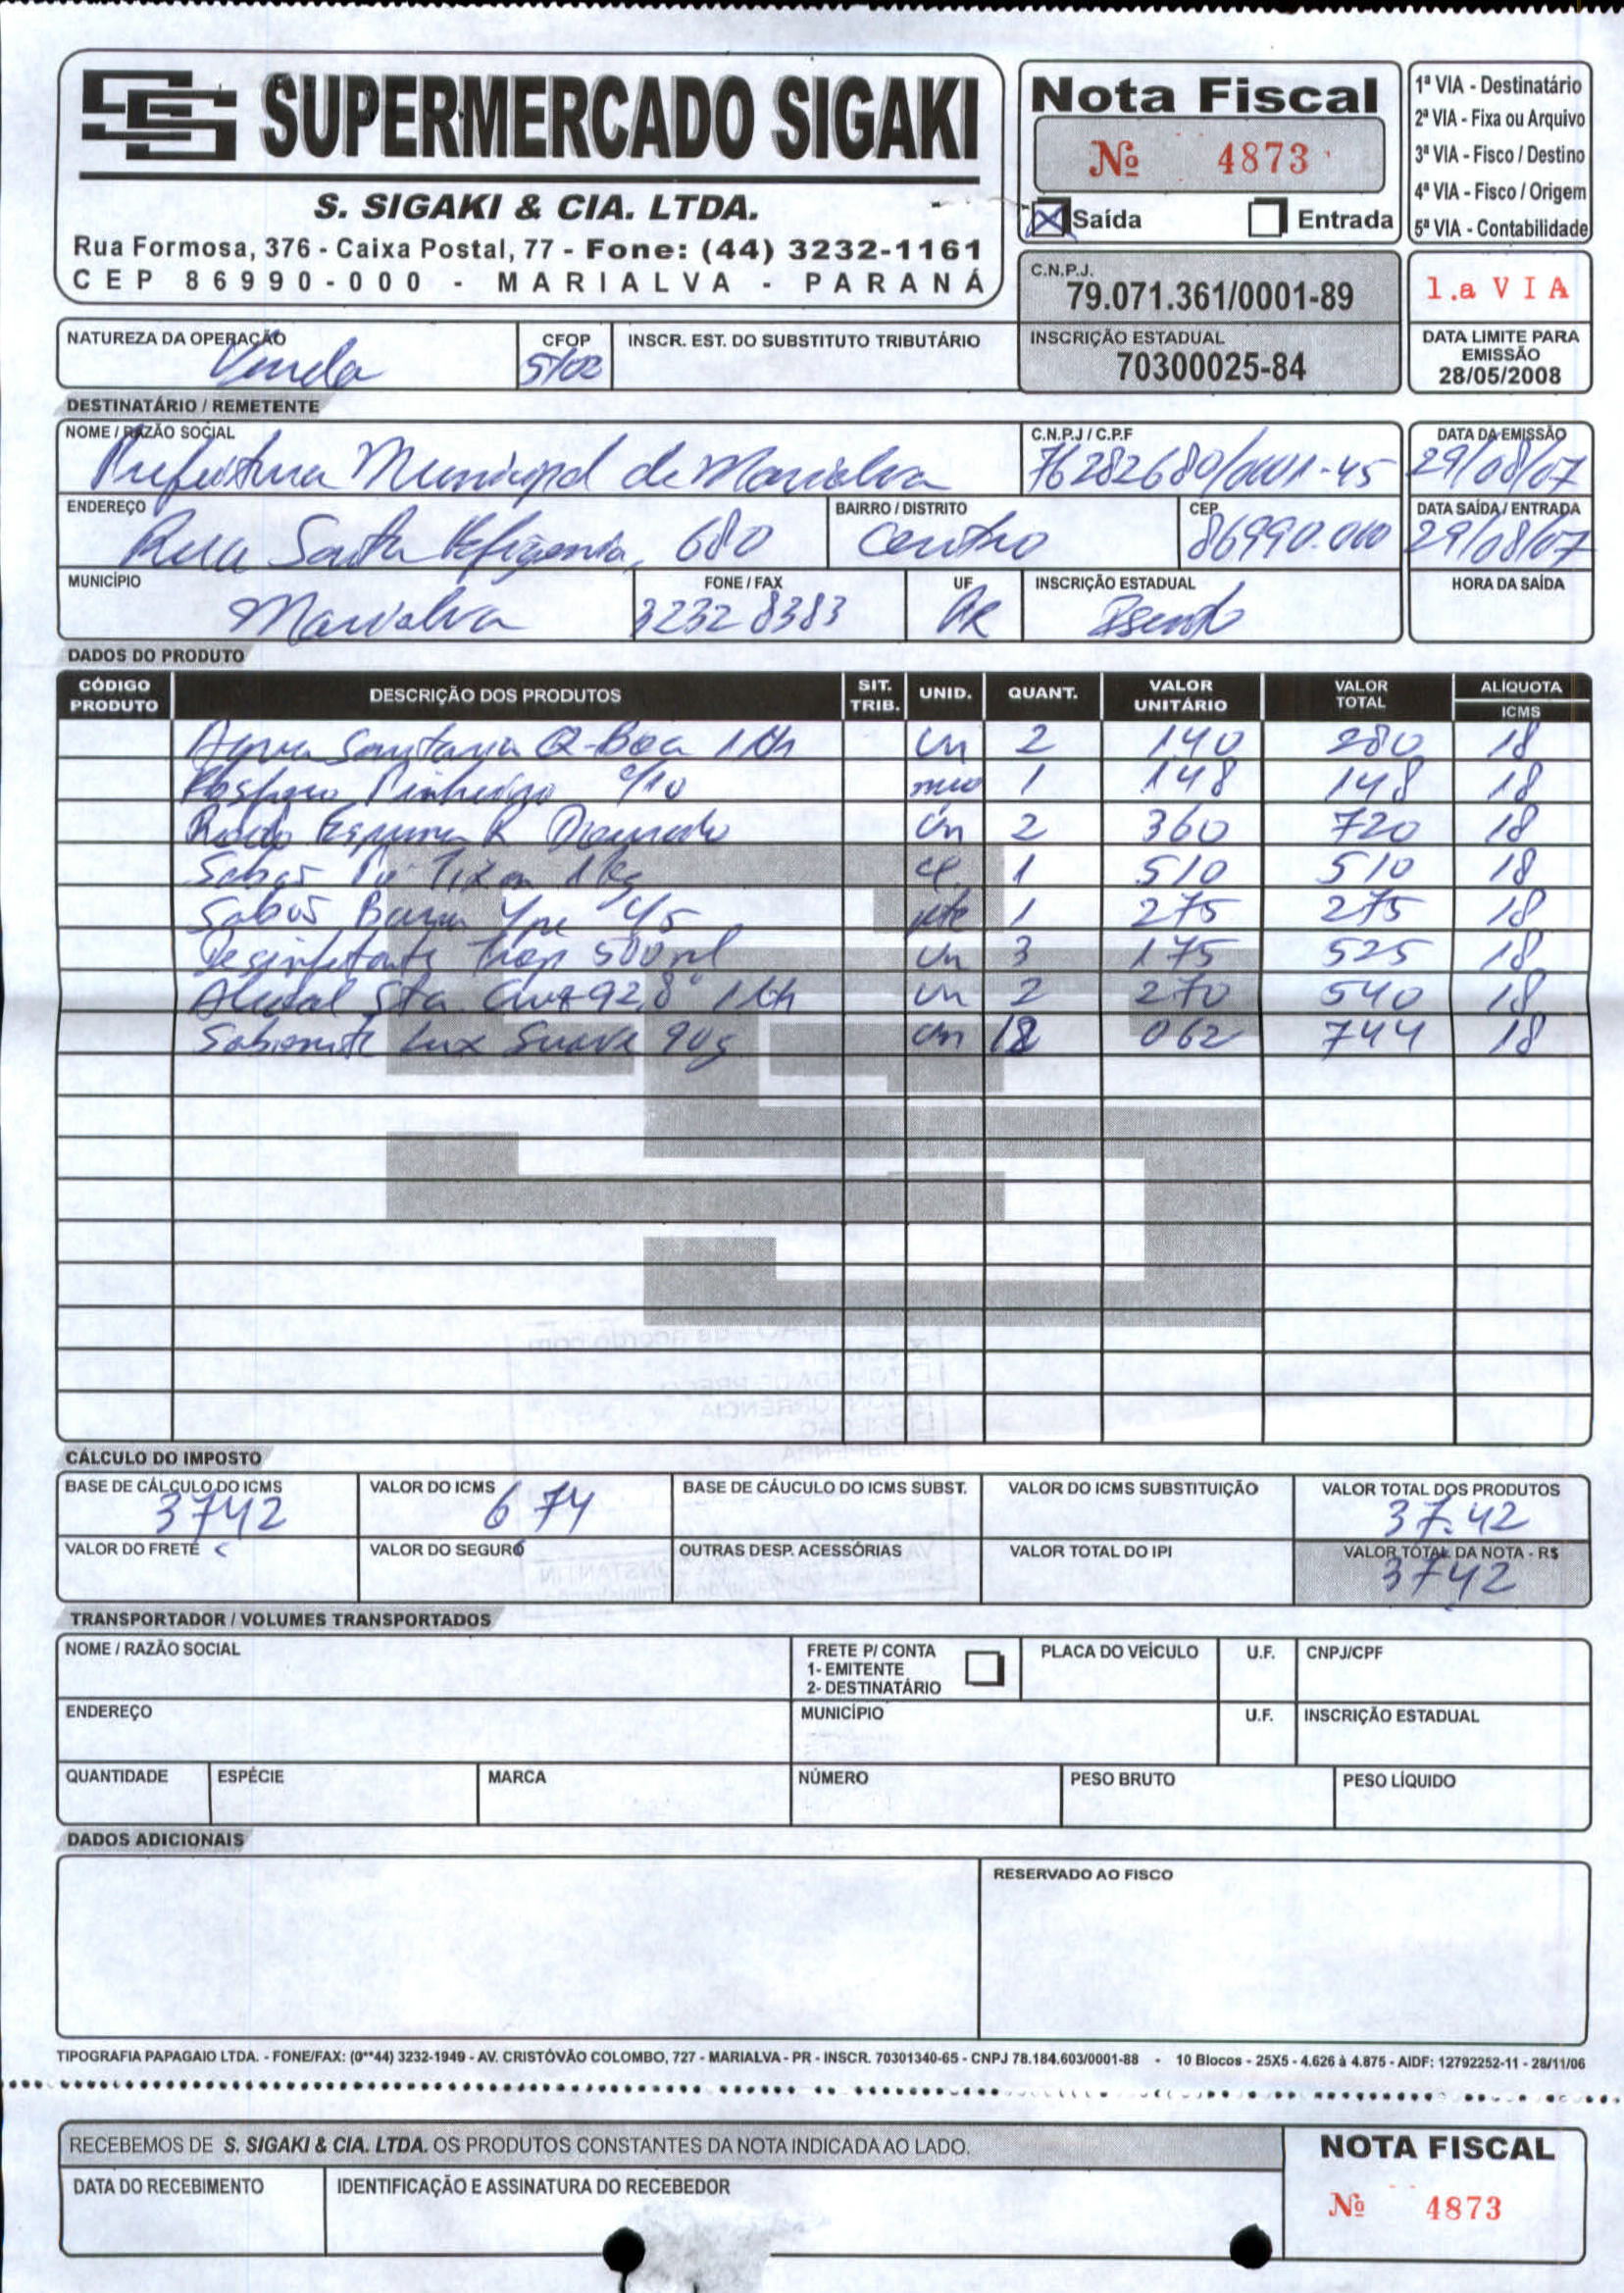 SUPERMERCADO SIGAKI
S. SIGAKI & CIA. LTDA.
Rua Formosa, 376 - Caixa Postal, 77 - Fone: (44) 3232-1161
CEP 86990-000 - MARIALVA - PARANÁ
Nota Fiscal
Nº 4873
X Saída Entrada
1ª VIA - Destinatário
2ª VIA - Fixa ou Arquivo
3ª VIA - Fisco / Destino
4ª VIA - Fisco / Origem
5ª VIA - Contabilidade
C.N.P.J.
79.071.361/0001-89
1.a VIA
NATUREZA DA OPERAÇÃO
Venda
CFOP
5102
INSCR. EST. DO SUBSTITUTO TRIBUTÁRIO
INSCRIÇÃO ESTADUAL
70300025-84
DATA LIMITE PARA
EMISSÃO
28/05/2008
DESTINATÁRIO / REMETENTE
NOME / RAZÃO SOCIAL
Prefeitura Municipal de Marialva
C.N.P.J / C.P.F
76282680/0001-45
DATA DA EMISSÃO
29/08/07
ENDEREÇO
Rua Santa Efigenia, 680
BAIRRO / DISTRITO
Centro
CEP
86990.000
DATA SAÍDA / ENTRADA
29/08/07
MUNICÍPIO
Marialva
FONE / FAX
3232 8383
UF
PR
INSCRIÇÃO ESTADUAL
Isento
HORA DA SAÍDA
DADOS DO PRODUTO
CÓDIGO PRODUTO DESCRIÇÃO DOS PRODUTOS SIT. TRIB. UNID. QUANT. VALOR UNITÁRIO VALOR TOTAL ALÍQUOTA ICMS
Agua Sanitaria Q-Boa 1 Lth un 2 140 280 18
Fosforo Pinheiro c/10 1 148 148 18
Rodo Espuma un 2 360 720 18
Sabão Pó Tixan 1kg cx 1 510 510 18
Sabão Barra Ype c/5 pte 1 275 275 18
Desinfetante 500ml un 3 175 525 18
Alcool Sta Cruz 92,8° 1 Lth un 2 270 540 18
Sabonete Lux Suave 90g un 12 062 744 18
CÁLCULO DO IMPOSTO
BASE DE CÁLCULO DO ICMS
3742
VALOR DO ICMS
674
BASE DE CÁUCULO DO ICMS SUBST.
VALOR DO ICMS SUBSTITUIÇÃO
VALOR TOTAL DOS PRODUTOS
37.42
VALOR DO FRETE
VALOR DO SEGURO
OUTRAS DESP. ACESSÓRIAS
VALOR TOTAL DO IPI
VALOR TOTAL DA NOTA - R$
3742
TRANSPORTADOR / VOLUMES TRANSPORTADOS
NOME / RAZÃO SOCIAL
FRETE P/ CONTA
1- EMITENTE
2- DESTINATÁRIO
PLACA DO VEÍCULO
U.F.
CNPJ/CPF
ENDEREÇO
MUNICÍPIO
U.F.
INSCRIÇÃO ESTADUAL
QUANTIDADE
ESPÉCIE
MARCA
NÚMERO
PESO BRUTO
PESO LÍQUIDO
DADOS ADICIONAIS
RESERVADO AO FISCO
TIPOGRAFIA PAPAGAIO LTDA. - FONE/FAX: (0**44) 3232-1949 - AV. CRISTÓVÃO COLOMBO, 727 - MARIALVA - PR - INSCR. 70301340-65 - CNPJ 78.184.603/0001-88 - 10 Blocos - 25X5 - 4.626 à 4.875 - AIDF: 12792252-11 - 28/11/06
RECEBEMOS DE S. SIGAKI & CIA. LTDA. OS PRODUTOS CONSTANTES DA NOTA INDICADA AO LADO.
NOTA FISCAL
DATA DO RECEBIMENTO
IDENTIFICAÇÃO E ASSINATURA DO RECEBEDOR
Nº 4873